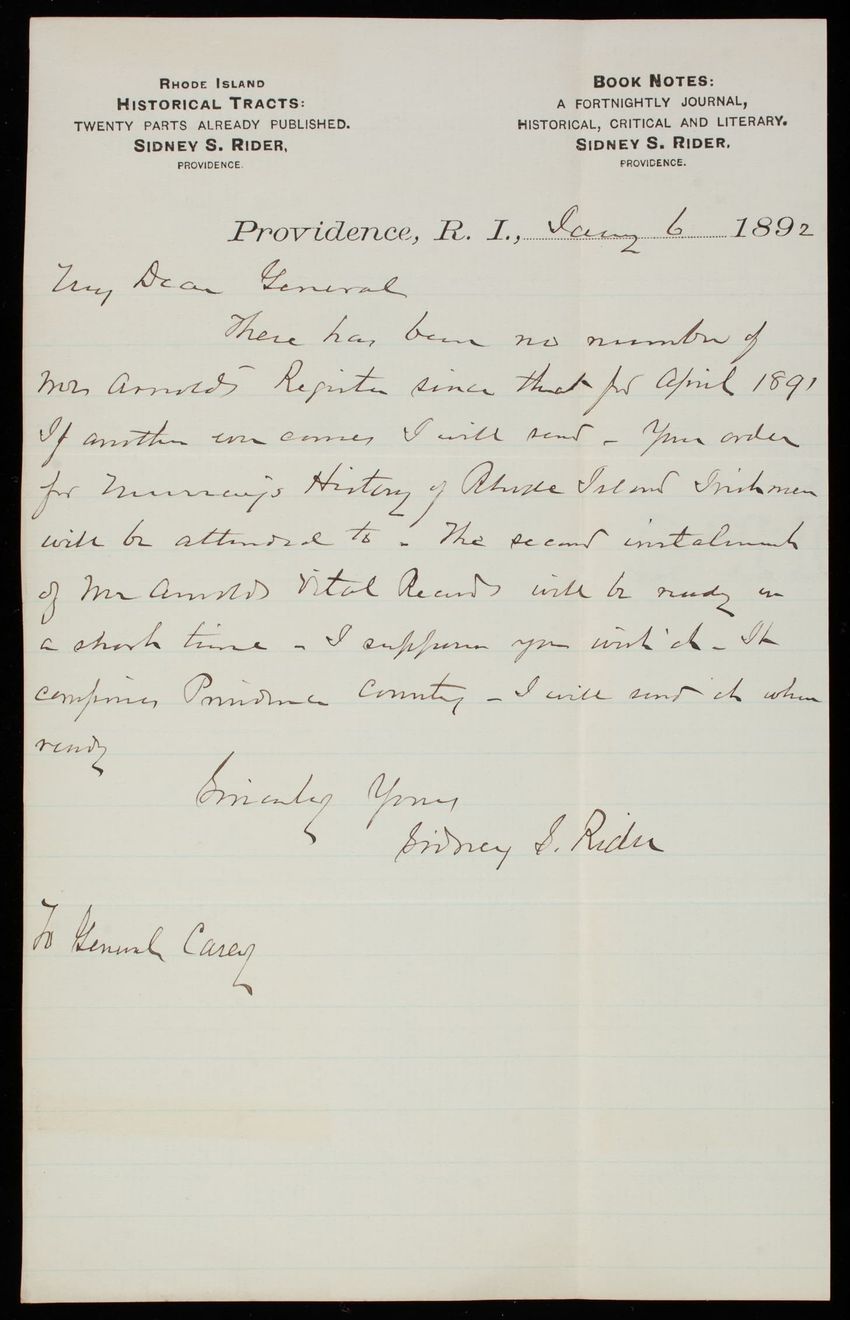 RHODE ISLAND
HISTORICAL TRACTS:
TWENTY PARTS ALREADY PUBLISHED.
SIDNEY S. RIDER,
PROVIDENCE.
BOOK NOTES:
A FORTNIGHTLY JOURNAL,
HISTORICAL, CRITICAL AND LITERARY.
SIDNEY S. RIDER,
PROVIDENCE.
Providence, R. I., Jany 6 1892
My Dear General
There has been no number of
Mrs Arnold's Register since that for April 1891
If another ever comes I will send - Your order
for Murray's History of Rhode Island Irishmen
will be attended to - The second instalment
of Mr Arnolds Vital Records will be ready in
a short time - I suppose you wish it - It
comprises Providence County - I will send it when
ready
Sincerely Yours
Sidney S. Rider
To General Casey